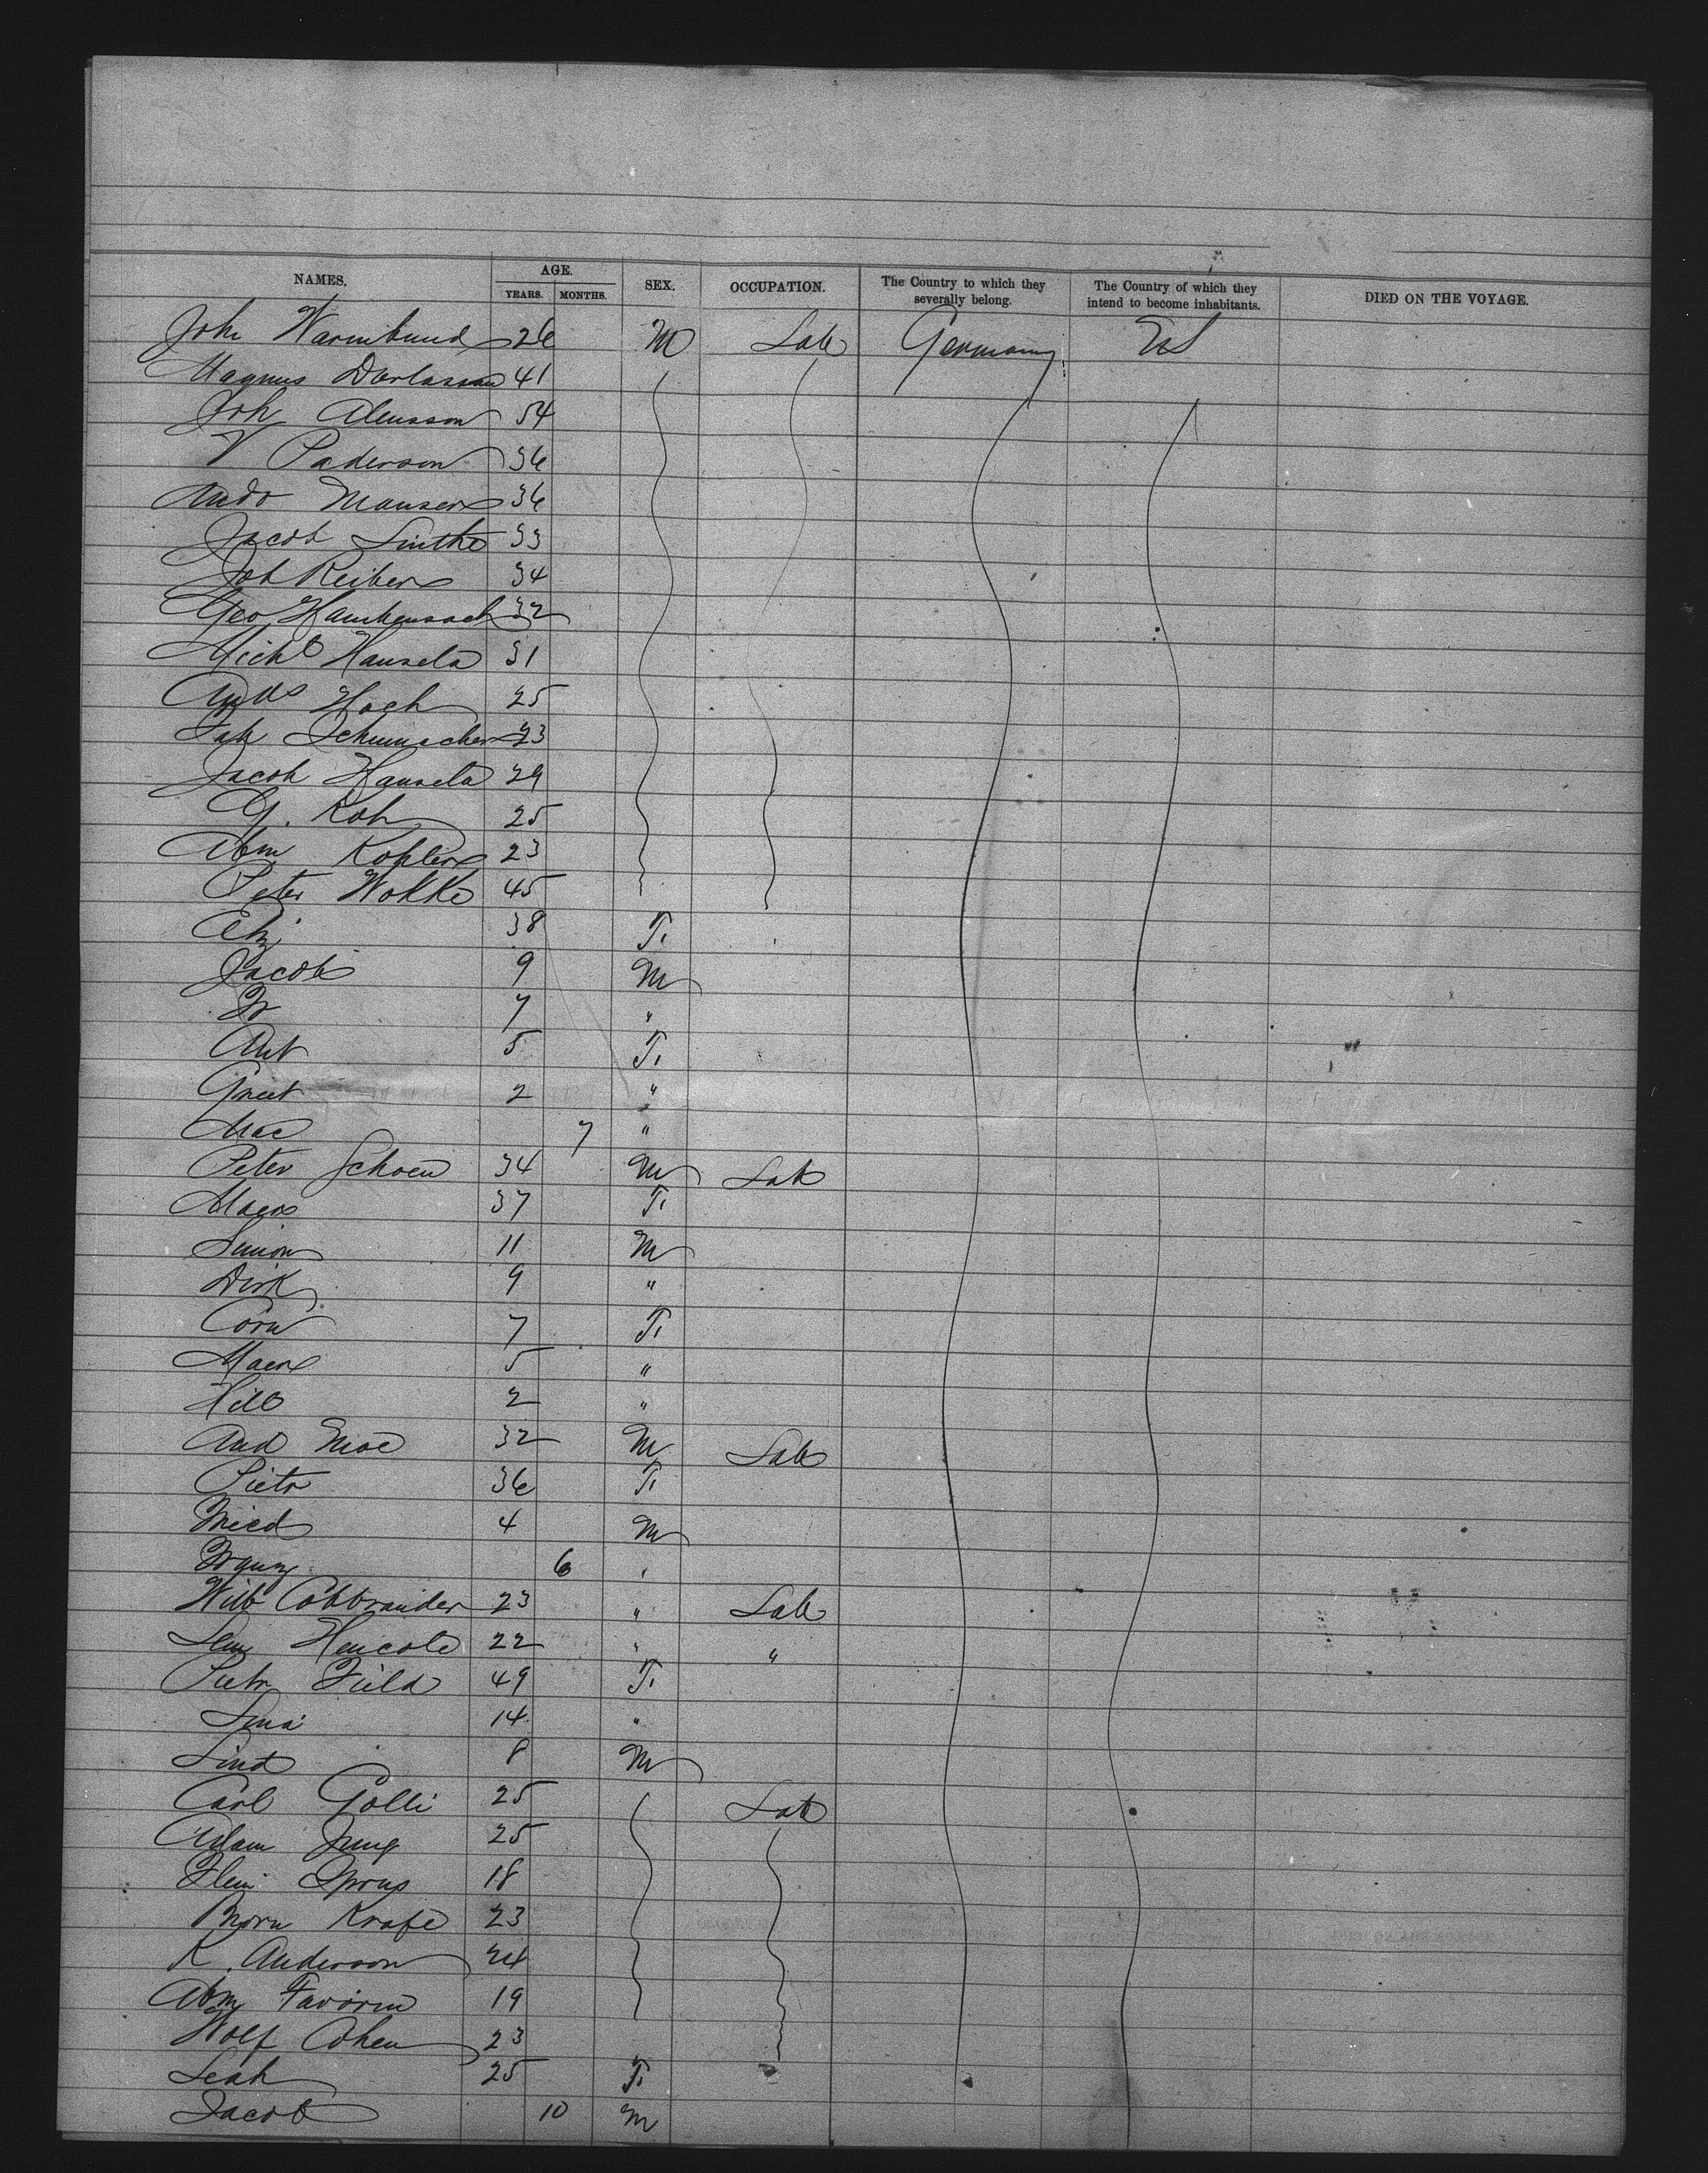 NAMES. AGE. YEARS. MONTHS. SEX. OCCUPATION. The Country to which they severally belong. The Country of which they intend to become inhabitants. DIED ON THE VOYAGE.
Joh Warmbund 26 M Lab Germany US
Magnus 41
Joh 54
V Paderson 36
Mauser 36
Jacob Linthe 33
Joh Reiber 34
Geo 32
Michl Hansela 31
Hoch 25
Jak Schumacher 23
Jacob Hansela 29
G. Koh 25
Abm Kohler 23
Peter Wokke 45
Eliz 38 F
Jacob 9 M
Fr 7 "
Ant 5 F
Greet 2 "
Mae 7 "
Peter Schoen 34 M Lab
37 F
Simon 11 M
Dirk 9 "
Corn 7 F
5 "
Hill 2 "
And Moe 32 M Lab
Pietr 36 F
Fried 4 M
Franz 6 "
Will Cobbrander 23 " Lab
22 " "
Pietr Field 49 F
Lina 14 "
8 M
Carl Golli 25 Lab
Adam Jung 25
18
Krafe 23
K. Anderson 24
Abm Favorin 19
Wolf Cohen 23
Leah 25 F
Jacob 10 M